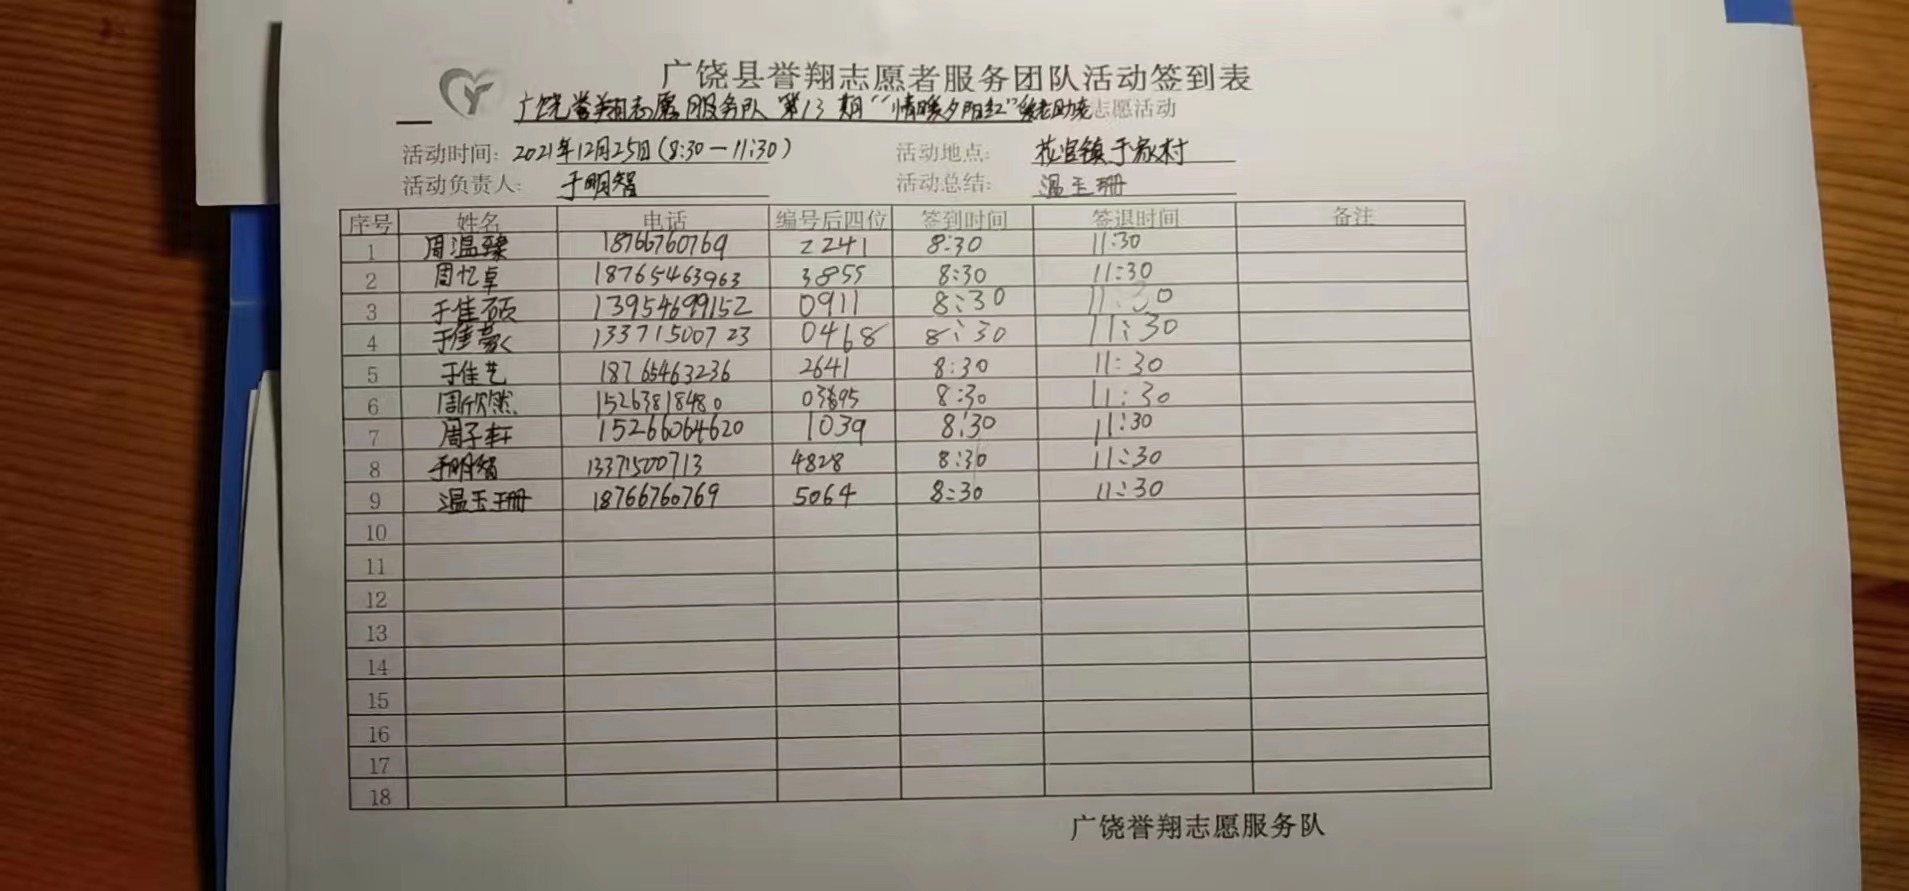 广饶县誉翔志愿者服务团队活动签到表
广饶誉翔志愿服务队 第13期"情暖夕阳红"爱老助老志愿活动
活动时间: 2021年12月25日(8:30-11:30) 活动地点: 花官镇于家村
活动负责人: 于明智 活动总结: 温玉珊
序号 姓名 电话 编号后四位 签到时间 签退时间 备注
1 周温臻 18766760769 2241 8:30 11:30
2 周忆卓 18765463963 3855 8:30 11:30
3 于佳硕 13954699152 0911 8:30 11:30
4 于佳豪 13371500723 0468 8:30 11:30
5 于佳艺 18765463236 2641 8:30 11:30
6 周欣然 15263818480 8:30 11:30
7 周子轩 15266064620 1039 8:30 11:30
8 于明智 13371500713 4828 8:30 11:30
9 温玉珊 18766760769 5064 8:30 11:30
10
11
12
13
14
15
16
17
18
广饶誉翔志愿服务队